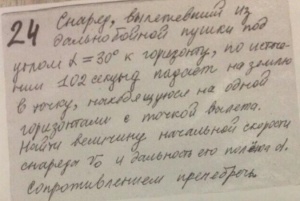 24 Снаряд, вылетевший из
дальнобойной пушки под
углом α = 30° к горизонту, по истече-
нии 102 секунд падает на землю
в точку, находящуюся на одной
горизонтали с точкой вылета.
Найти величину начальной скорости
снаряда v0 и дальность его полёта d.
Сопротивлением пренебречь.